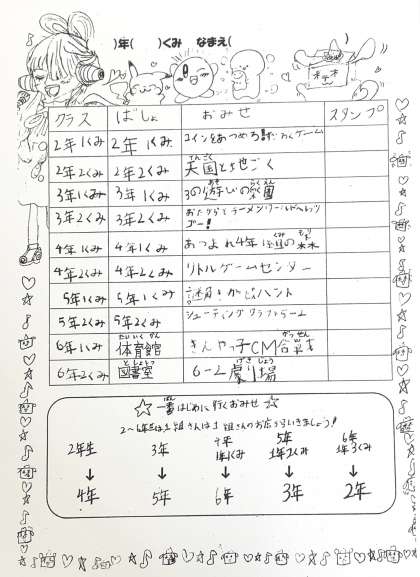 )年(　　)くみ　なまえ(
クラス　ばしょ　おみせ　スタンプ
2年1くみ　2年1くみ　コインをあつめろ!　ゲーム
2年2くみ　2年2くみ　天国とぢごく
3年1くみ　3年1くみ　3の遊びの楽園
3年2くみ　3年2くみ　おたからとラーメンワールドへレッツゴー!
4年1くみ　4年1くみ　あつまれ4年1組の森
4年2くみ　4年2くみ　リトルゲームセンター
5年1くみ　5年1くみ　謎ときハント
5年2くみ　5年2くみ　シューティングクラフトゲーム
6年1くみ　体育館　きんやっ子CM合戦
6年2くみ　図書室　6-2劇場
☆一番はじめに行くおみせ☆
2〜6年生は1組さんは1組さんのお店に行きましょう!
2年生　3年　4年　5年　6年
1年1くみ　1年2くみ　1年3くみ
↓　↓　↓　↓　↓
4年　5年　6年　3年　2年